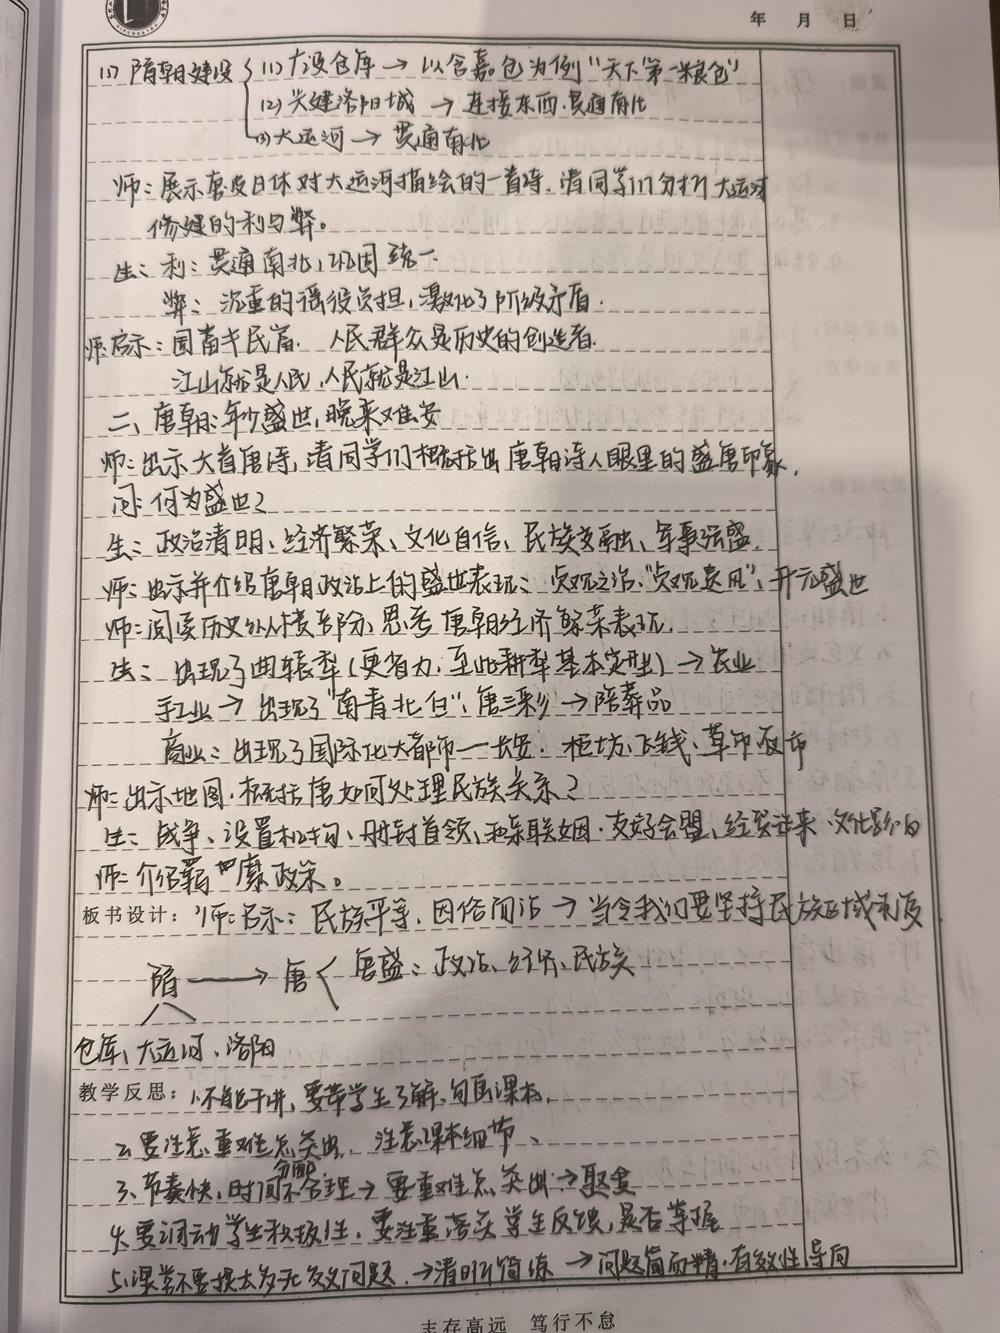 年 月 日
(1) 隋朝建设 (1) 广设仓库 → 以含嘉仓为例 "天下第一粮仓"
(2) 兴建洛阳城 → 连接东西、贯通南北
(3) 大运河 → 贯通南北
师：展示唐皮日休对大运河描绘的一首诗，请同学们分析大运河
修建的利与弊。
生：利：贯通南北，巩固统一
弊：沉重的徭役负担，激化了阶级矛盾.
师启示：国富≠民富. 人民群众是历史的创造者.
江山就是人民，人民就是江山.
二、唐朝：年少盛世，晚来难安
师：出示大首唐诗，请同学们概括出唐朝诗人眼里的盛唐印象.
问：何为盛世？
生：政治清明、经济繁荣、文化自信、民族交融、军事强盛.
师：出示并介绍唐朝政治上的盛世表现：贞观之治、"贞观遗风"、开元盛世
师：阅读历史纵横部分，思考唐朝经济繁荣表现.
生：出现了曲辕犁(更省力，至此耕犁基本定型) → 农业
手工业 → 出现了"南青北白"、唐三彩 → 陪葬品
商业：出现了国际化大都市—长安. 柜坊、飞钱、草市夜市
师：出示地图，概括唐如何处理民族关系？
生：战争、设置机构、册封首领、和亲联姻、友好会盟、经贸往来、文化影响
师：介绍羁縻政策。
板书设计： 师：启示：民族平等，因俗而治 → 当今我们要坚持民族区域制度.
隋 → 唐 唐盛：政治、经济、民族
仓库、大运河、洛阳
教学反思： 1.不能干讲，要带学生了解，勾画课本.
2.要注意重难点突出，注意课本细节、
3.节奏快，时间分配不合理 → 要重难点突出 → 聚焦
4.要调动学生积极性，要注重落实学生反馈，是否掌握
5.课堂不要提太多无效问题. → 清晰简练 → 问题简而精，有效性导向
志存高远 笃行不怠